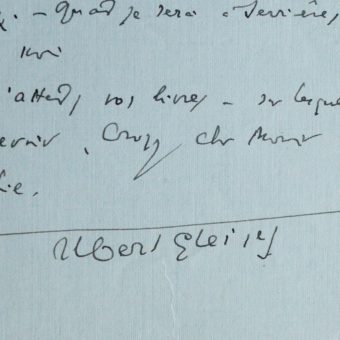 . - Quand je serai à Serrières,
moi
j'attends vos livres - sur lesque
Croyez cher Monsi
ie.
Albert Gleizes